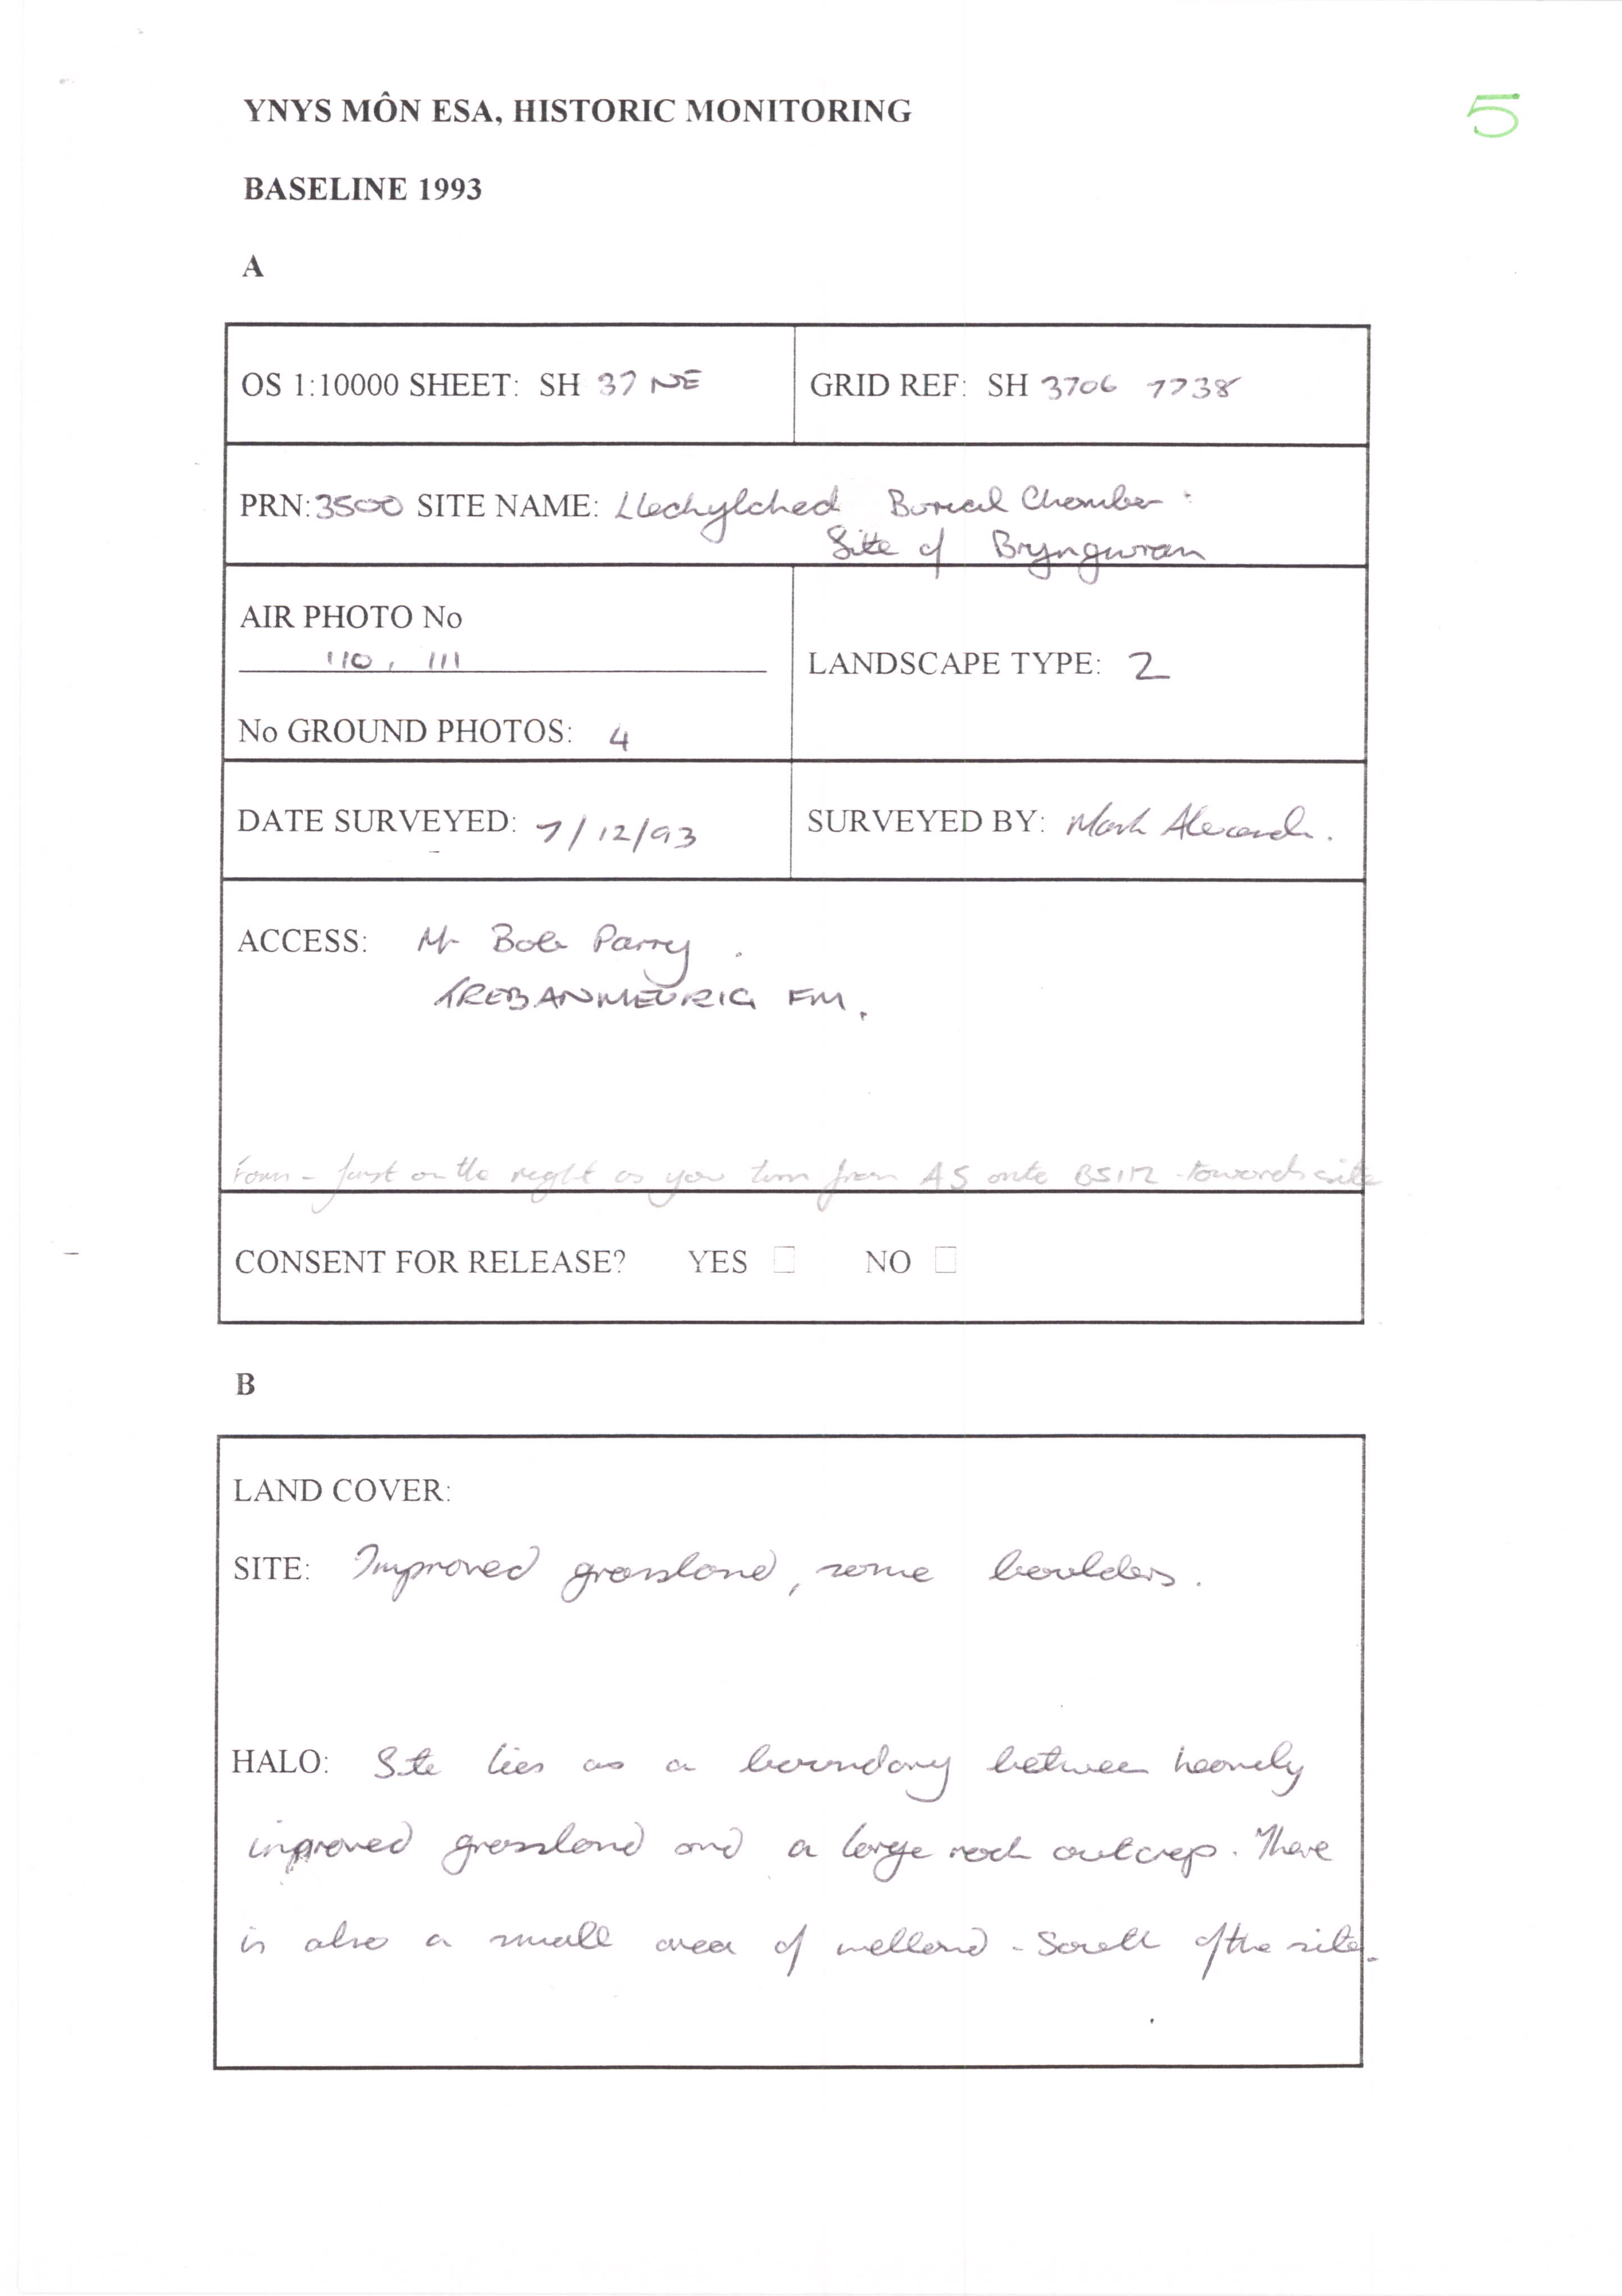 YNYS MÔN ESA, HISTORIC MONITORING
5
BASELINE 1993
A
OS 1:10000 SHEET: SH 37 NE
GRID REF: SH 3706 7738
PRN: 3500 SITE NAME: Llechylched Burial Chamber:
Site of Bryngwran
AIR PHOTO No
110, 111
LANDSCAPE TYPE: 2
No GROUND PHOTOS: 4
DATE SURVEYED: 7/12/93
SURVEYED BY: Mark Alexander.
ACCESS: Mr Bob Parry.
TREBANMEURIG FM.
Farm - just on the right as you turn from A5 onto B5112 - towards site
CONSENT FOR RELEASE? YES NO
B
LAND COVER:
SITE: Improved grassland, some boulders.
HALO: Site lies as a boundary between heavily
improved grassland and a large rock outcrop. There
is also a small area of wetland - South of the site.